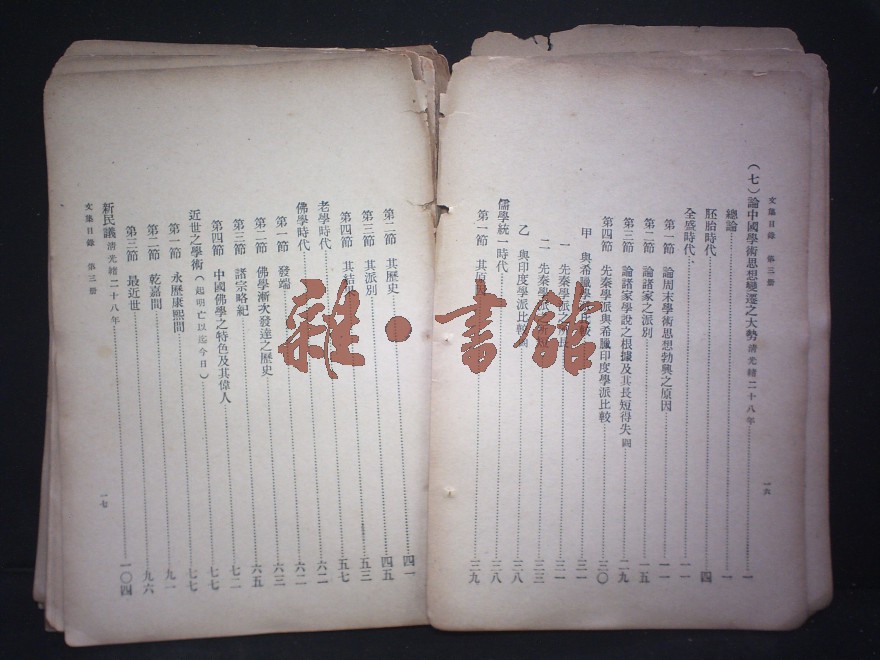 文集目錄 第三册
(七)論中國學術思想變遷之大勢 清光緒二十八年 一
總論 一
胚胎時代 四
全盛時代 一一
第一節 論周末學術思想勃興之原因 一一
第二節 論諸家之派別 一五
第三節 論諸家學說之根據及其長短得失 闕 二九
第四節 先秦學派與希臘印度學派比較 三〇
甲 與希臘學派比較 三一
一 先秦學派之所長 三一
二 先秦學派 三三
乙 與印度學派比較 闕 三八
儒學統一時代 三八
第一節 其原因 三九
一六
第二節 其歷史 四一
第三節 其派別 四五
第四節 其結果 五三
老學時代 五七
佛學時代 六二
第一節 發端 六二
第二節 佛學漸次發達之歷史 六三
第三節 諸宗略紀 六五
第四節 中國佛學之特色及其偉人 七二
近世之學術(起明亡以迄今日) 七七
第一節 永歷康熙間 七七
第二節 乾嘉間 九一
第三節 最近世 九六
新民議 清光緒二十八年 一〇四
文集目錄 第三册
一七
雜·書館